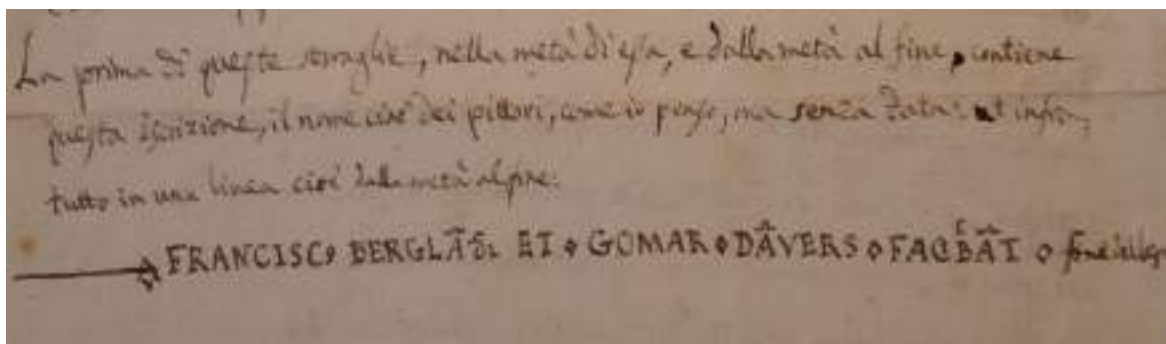 La prima di queste tovaglie, nella metà di essa, e dalla metà al fine, contiene
questa Iscrizione, il nome cioè dei pittori, come io penso, ma senza data: ut infra,
tutto in una linea cioè dalla metà al fine:
FRANCISC9 BERGLÃ ET ⋄ GOMAR ⋄ DÂVERS ⋄ FACBÃT ⋄